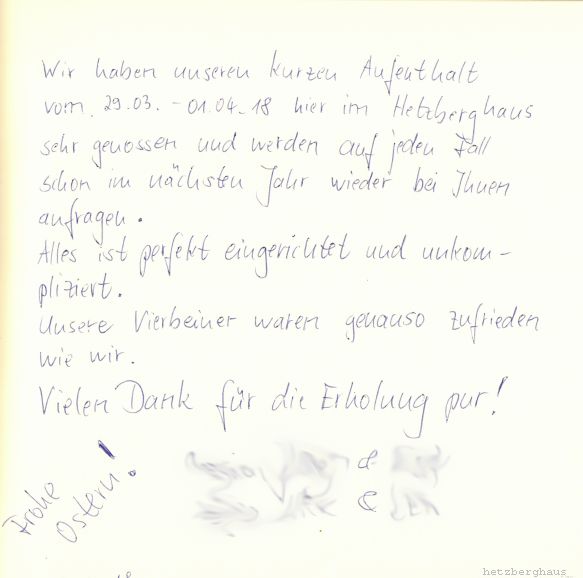 Wir haben unseren kurzen Aufenthalt
vom 29.03. - 01.04.18 hier im Hetzberghaus
sehr genossen und werden auf jeden Fall
schon im nächsten Jahr wieder bei Ihnen
anfragen.
Alles ist perfekt eingerichtet und unkom-
pliziert.
Unsere Vierbeiner waren genauso zufrieden
wie wir.
Vielen Dank für die Erholung pur!
Frohe
Ostern!
&
&
hetzberghaus